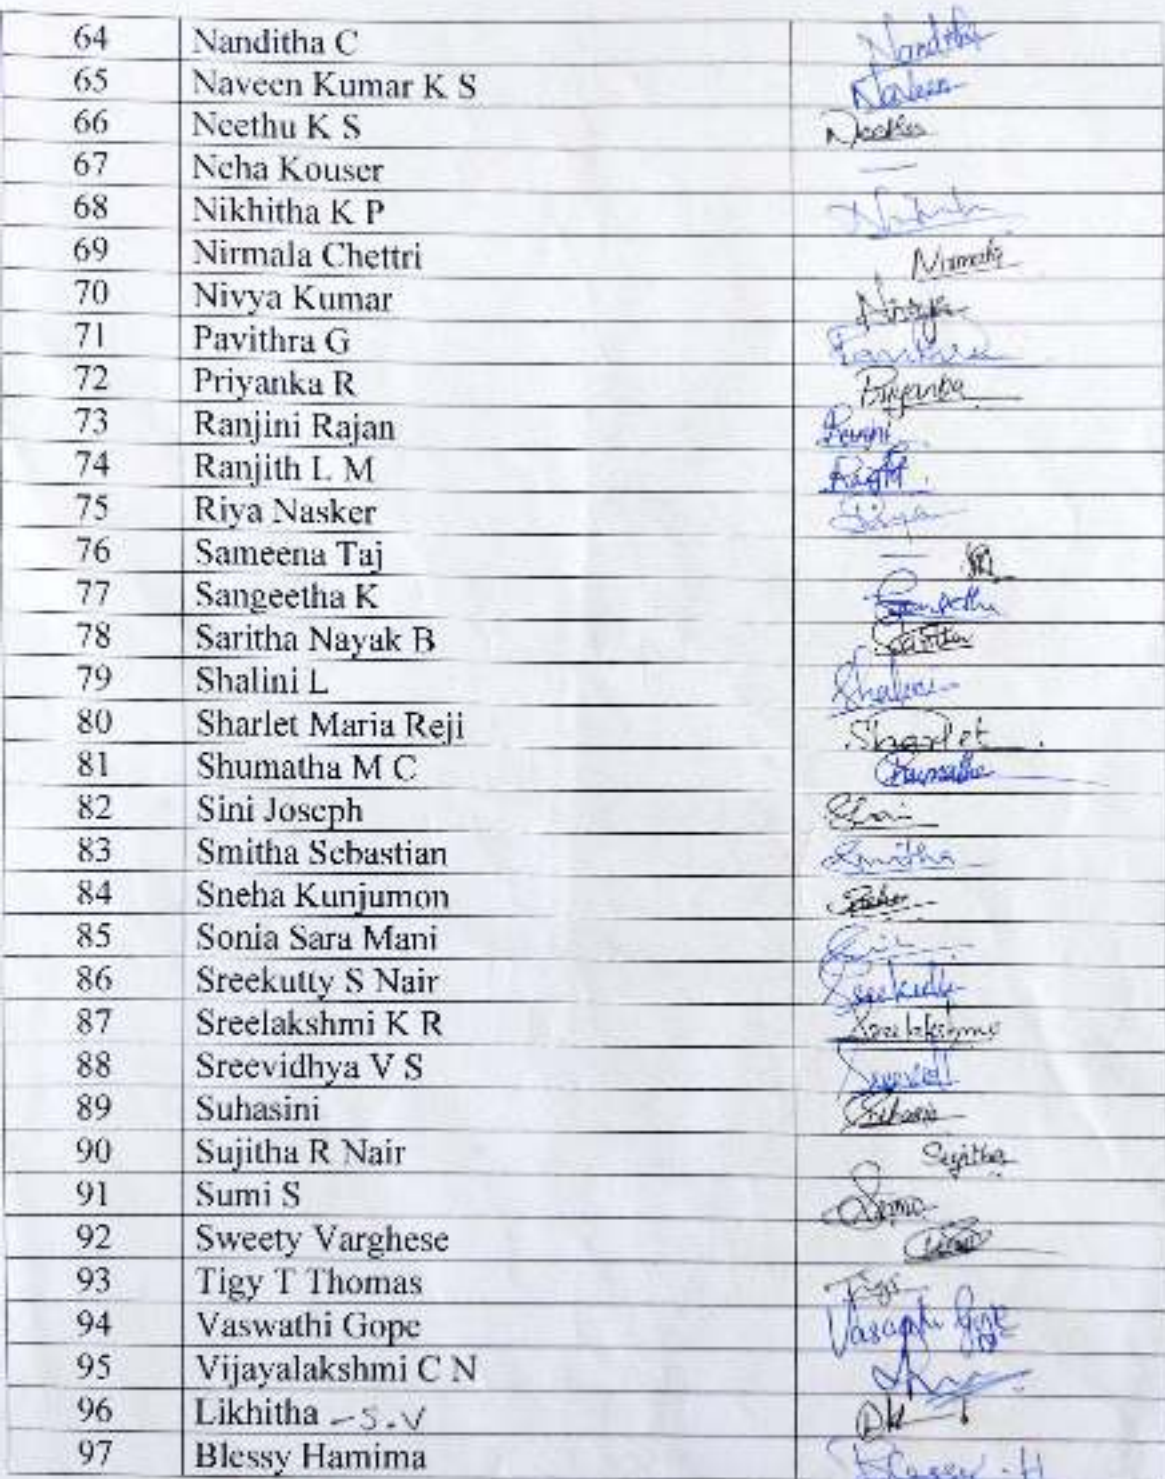 64 Nanditha C Nanditha
65 Naveen Kumar K S Naveen
66 Neethu K S Neethu
67 Neha Kouser —
68 Nikhitha K P
69 Nirmala Chettri Nirmala
70 Nivya Kumar Nivya
71 Pavithra G Pavithra
72 Priyanka R Priyanka
73 Ranjini Rajan
74 Ranjith L M
75 Riya Nasker
76 Sameena Taj —
77 Sangeetha K
78 Saritha Nayak B Saritha
79 Shalini L Shalini
80 Sharlet Maria Reji Sharlet
81 Shumatha M C
82 Sini Joseph
83 Smitha Sebastian Smitha
84 Sneha Kunjumon
85 Sonia Sara Mani
86 Sreekutty S Nair
87 Sreelakshmi K R Sreelakshmi
88 Sreevidhya V S
89 Suhasini Suhasini
90 Sujitha R Nair Sujitha
91 Sumi S
92 Sweety Varghese
93 Tigy T Thomas Tigy
94 Vaswathi Gope
95 Vijayalakshmi C N
96 Likhitha - S.V
97 Blessy Hamima Blessy . H